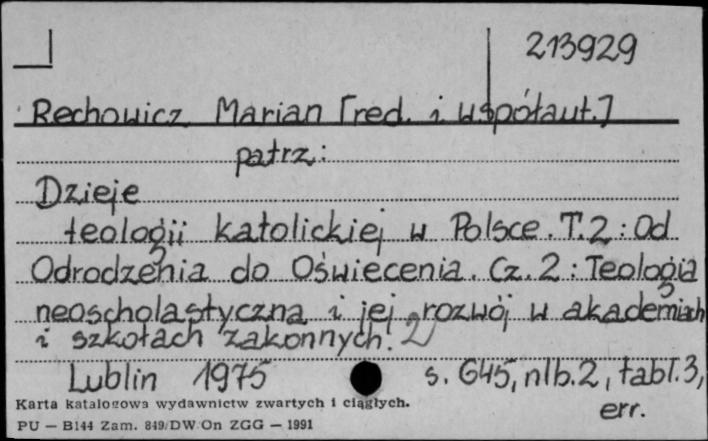 213929
Rechowicz Marian [red. i współaut.]
patrz:
Dzieje
teologii katolickiej w Polsce. T. 2: Od
Odrodzenia do Oświecenia. Cz. 2: Teologia
neoscholastyczna i jej rozwój w akademiach
i szkołach zakonnych.
Lublin 1975 s. 645, nlb. 2, tabl. 3,
err.
Karta katalogowa wydawnictw zwartych i ciągłych.
PU — B144 Zam. 849/DW/On ZGG — 1991